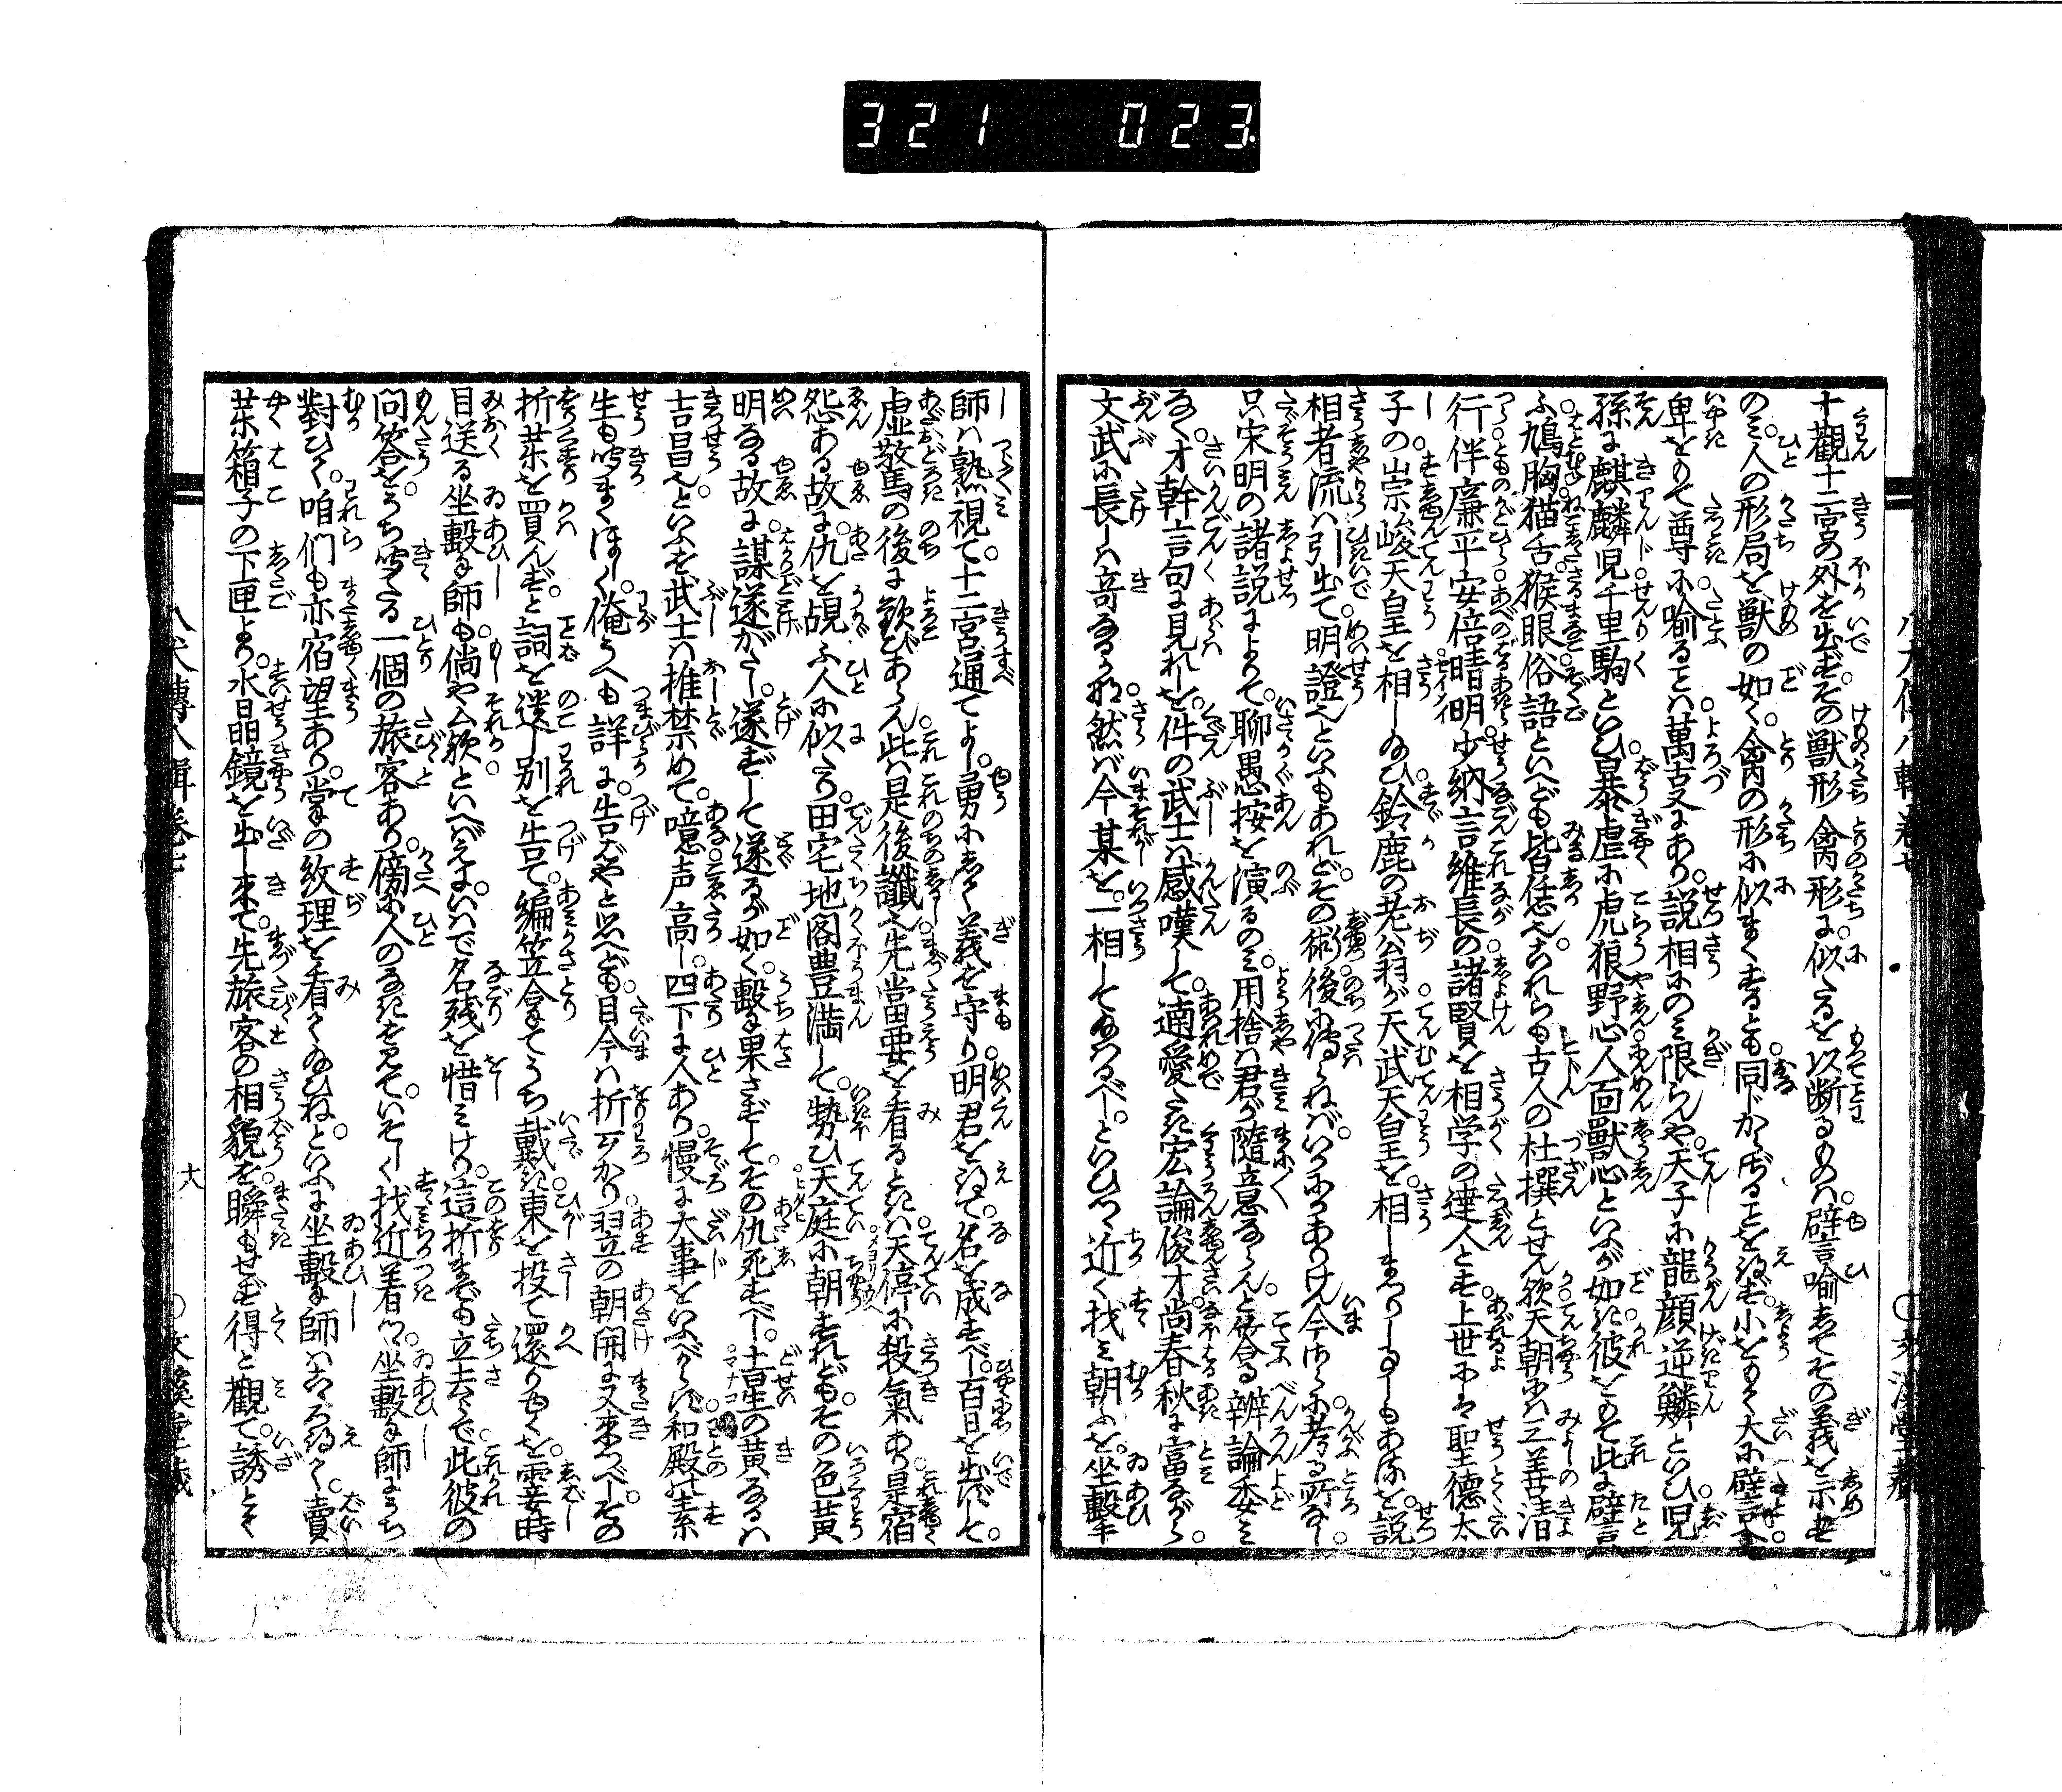 321 023
十觀十二宮の外を出ず。その獣形禽形に似たるを以断るものは。譬言喩してその義を示せ
のミ。人の形局を獣の如く。禽の形に似まくするとも。同じからざることを得ず。小をもて大に譬
卑をもて尊に喩ること は。萬支にあり。説相にのミ限らんや。天子に龍顔逆鱗といひ。児
孫に麒麟児千里駒といひ。暴虐に虎狼野心人面獣心といふが如き。彼をもて此に譬言
ふ。鳩胸猫舌猴眼俗語といへども皆恁也。これらも古人の杜撰とせん歟。天朝には三善清
行。伴廉平。安倍晴明。少納言維長の諸賢を相学の達人とす。上世には聖徳太
子の崇峻天皇を相しゐひ。鈴鹿の老翁が天武天皇を。相しまつりし事もあれを。説
相者流は引出て。明證也といふもあれど。その術後に傳らねば。いかにかありけん今さらに考る所なし。
只宋明の諸説によりて。聊愚按を演るのミ。用捨は君が隨意ならんと答る辨論委ミ
なく。才幹言句に見れしを。件の武士は感嘆して。適愛たき宏論俊才。尚春秋に富ながら。
文武に長しは竒なるかな。然ば今某を。一相してゐはるべし。といひつゝ近く找ミ朝ふを。坐撃
師は熟視て。十二宮通てよし。勇にして義を守り。明君を得て。名を成すべし。百日を出ずして。
虚驚の後に歓びあらん。此は是後讖也。先當要を看るときは。天停に殺氣あり。是宿
怨ある故に。仇を覘ふ人に似たり。田宅地閣豊満して。勢ひ天庭に朝すれども。その色黄
明なる故に。謀遂がたし。遂ずして遂るが如く。撃も果さずして。その仇死すべし。土星の黄なるは
吉昌也。といふを武士は推禁めて。噫声高し。四下に人あり。慢に大事をいふべからず。和殿は素
生も聞まくほしく。俺うへも詳に告ばやと思へども。目今は折わろかり。翌の朝開に又来つべし。その
折菜を買んず。と詞を遺し別を告て。編笠拿てうち戴き東を投て還りゆくを。霎時
目送る坐撃師も。倘や厶歟といへばえに。いはで名残を惜ミけり。這折までも立去らで。此彼の
問答を。うち聞たる一個の旅客あり。傍に人のなきを見て。いそしく找近着つ。坐撃師にうち
對ひて。咱們も亦宿望あり。掌の紋理を看てゐひね。といふに坐撃師はこゝろ得て。賣
菜箱子の下匣より。水晶鏡を出し来て。先旅客の相貌を。瞬もせず得と觀て。誘とて
八犬傳八輯巻七
十八
○文溪堂藏